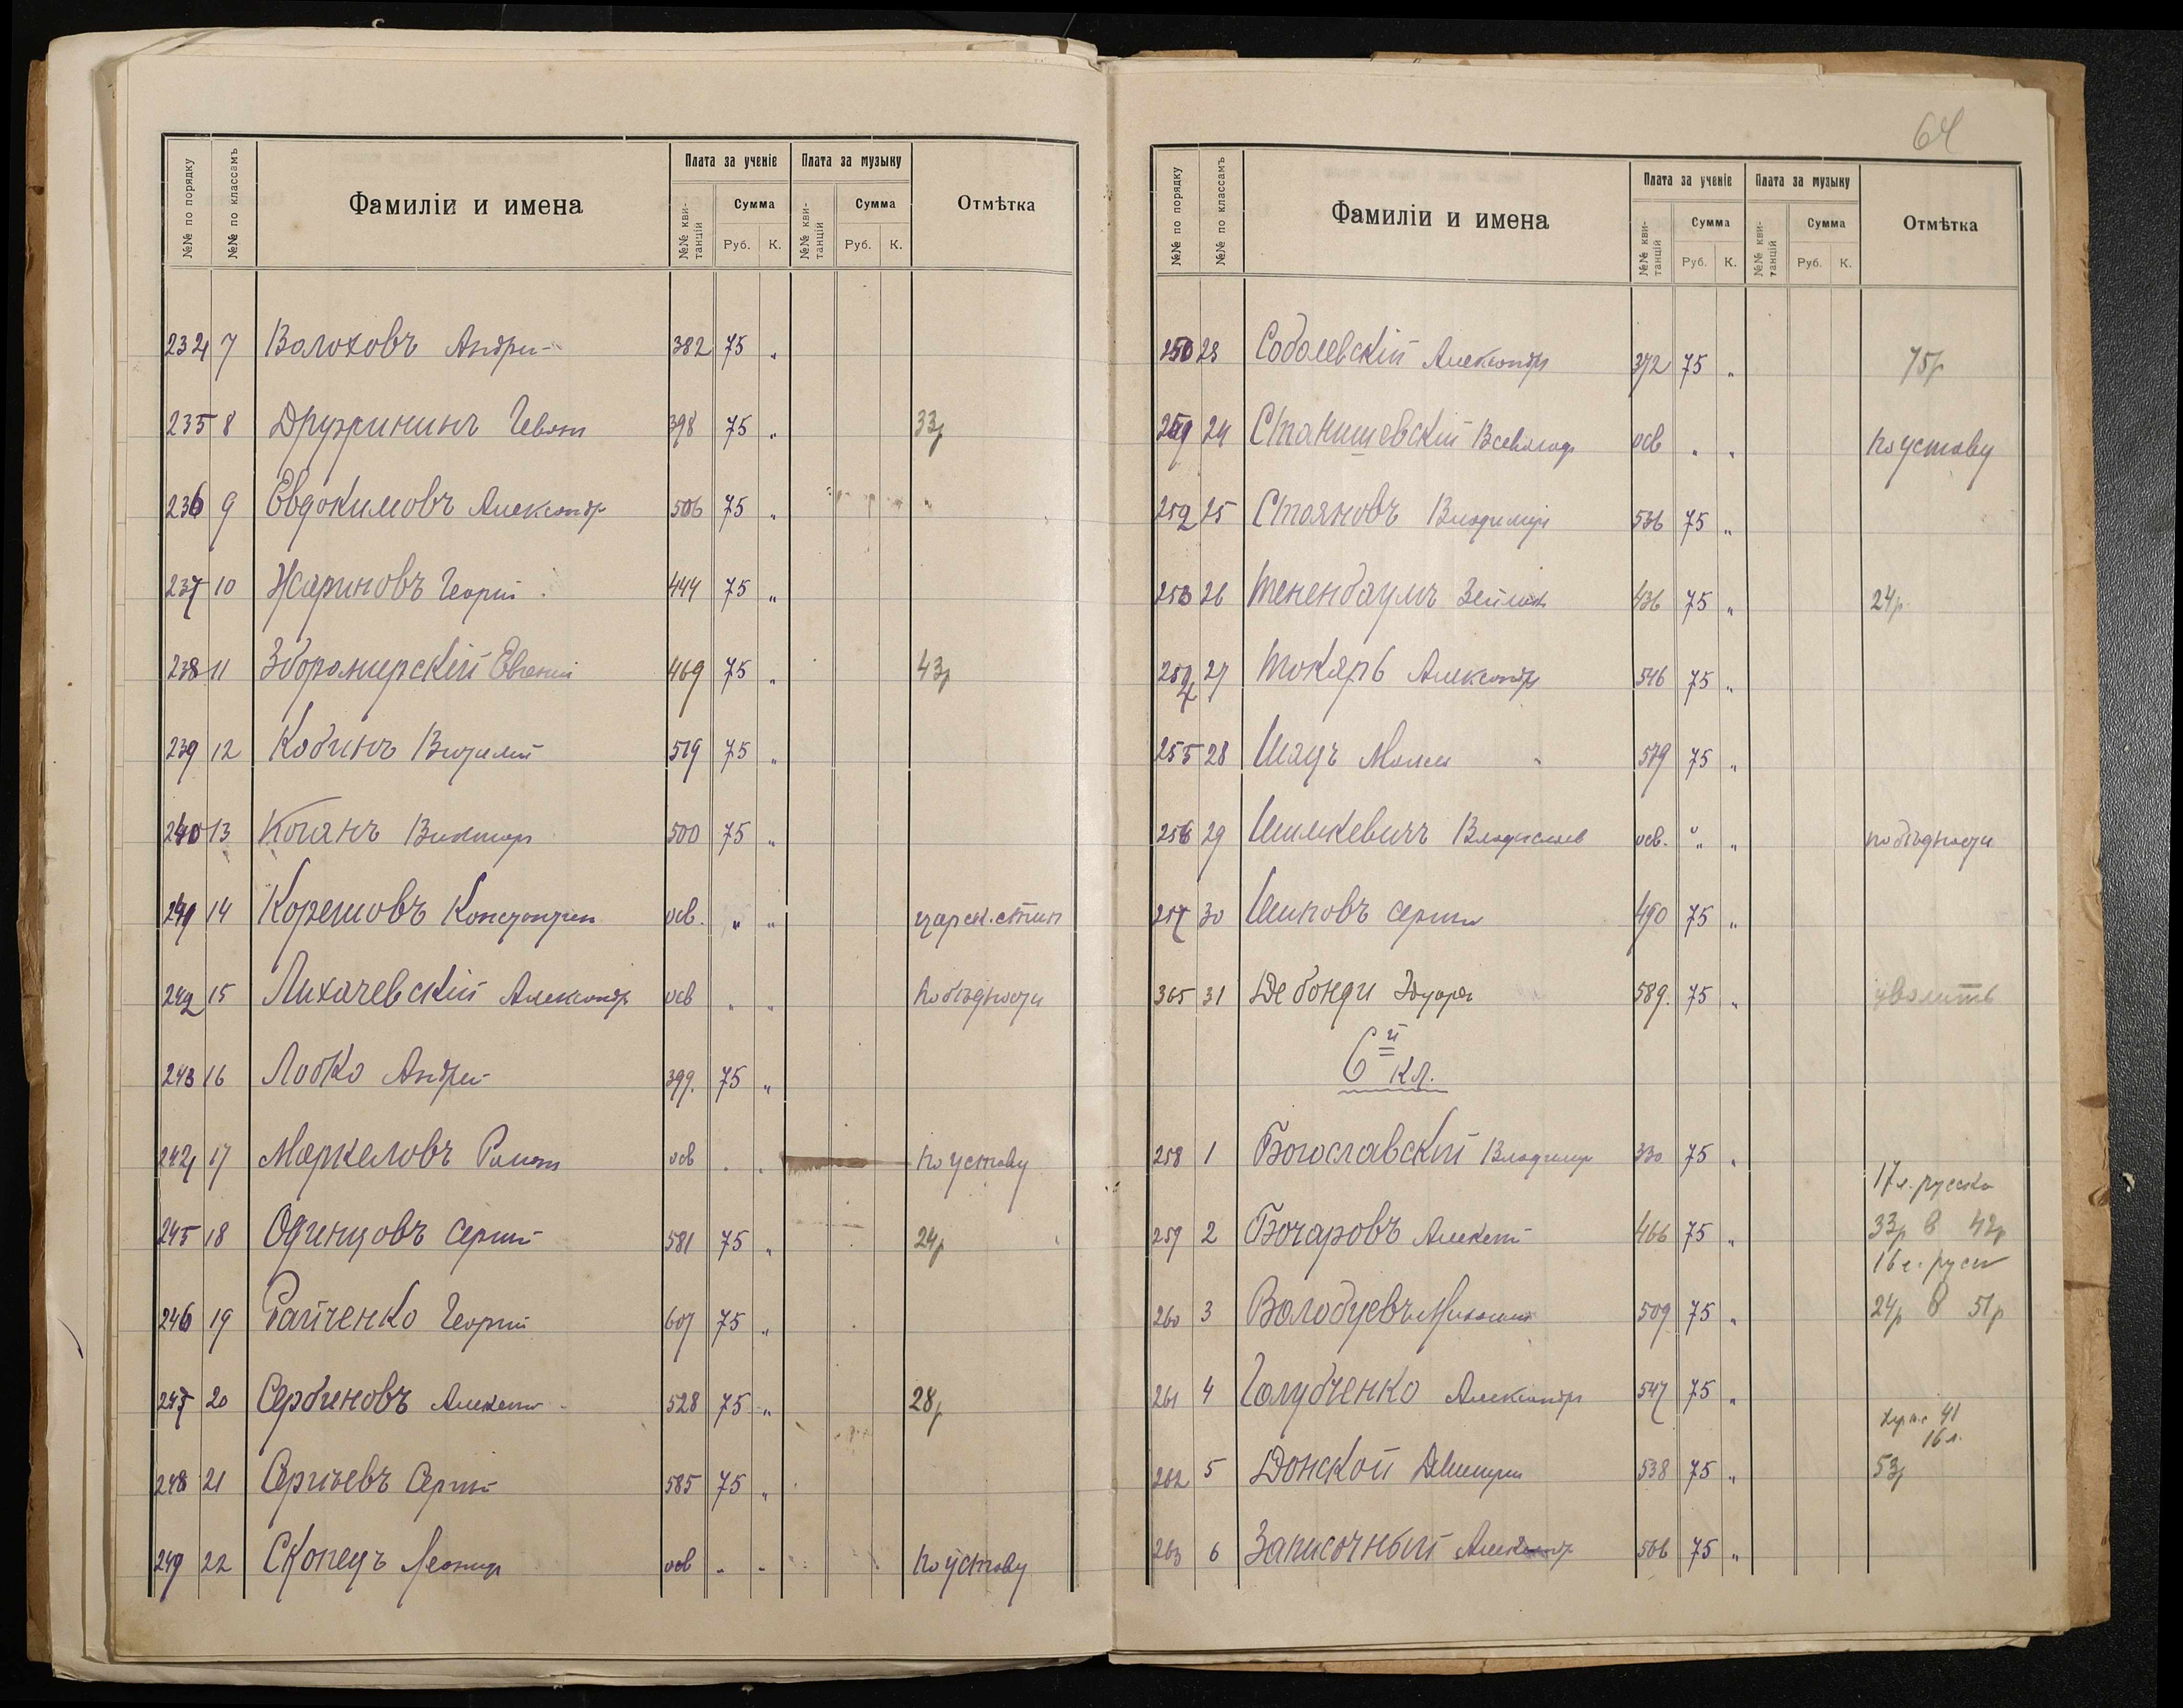 №№ по порядку №№ по классамъ Фамиліи и имена Плата за ученіе Плата за музыку Отмѣтка
№№ кви-танцій Сумма №№ кви-танцій Сумма
Руб. К. Руб. К.
234 7 Волоховъ Андрей 382 75 „
235 8 Дружининъ 398 75 „ 33р
236 9 Евдокимовъ Александр 506 75 „ „
237 10 Жариновъ Георгій 444 75 „
238 11 Збороmирскій Евгеній 469 75 „ 43р
239 12 Кобинъ Виталій 519 75 „
240 13 Коганъ Виктор 500 75 „
241 14 Корешовъ Константин осв. „ „ царск. стип
242 15 Лихачевскій Александр осв „ „ по бѣдности
243 16 Лобко Андрей 399. 75 „
244 17 Маркеловъ Роман осв „ „ по уставу
245 18 Одинцовъ Сергѣй 581 75 „ 24р
246 19 Райченко Георгій 607 75 „
247 20 Сербиновъ Алексѣй 528 75 „ 28р
248 21 Сергѣевъ Сергѣй 585 75 „
249 22 Скопецъ Леонид осв „ „ по уставу
64
№№ по порядку №№ по классамъ Фамиліи и имена Плата за ученіе Плата за музыку Отмѣтка
№№ кви-танцій Сумма №№ кви-танцій Сумма
Руб. К. Руб. К.
250 23 Соболевскій Александр 372 75 „ 75р
24 Станишевскій Всеволод осв „ „ по уставу
252 25 Стояновъ Владимір 536 75 „
253 26 Тененбаумъ 436 75 „ 24р
254 27 Токарь Александр 546 75 „
255 28 Шацъ 579 75 „
256 29 Шимкевичъ Владислав осв. „ „ по бѣдности
257 30 Шиповъ Сергѣй 490 75 „
365 31 Де бонди Эдуард 589. 75 „ уволить
6й кл.
258 1 Богославскій Владимир 330 75 „
17 л. русско
259 2 Бочаровъ Алексѣй 466 75 „ 33р 8 42р
16 л. русск
260 3 Волобуевъ Михаил 509 75 „ 24р 8 51р
261 4 Голубченко Александр 547 75 „
41
16 л.
262 5 Донской Дмитрій 538 75 „ 53р
263 6 Записочный Александр 506 75 „